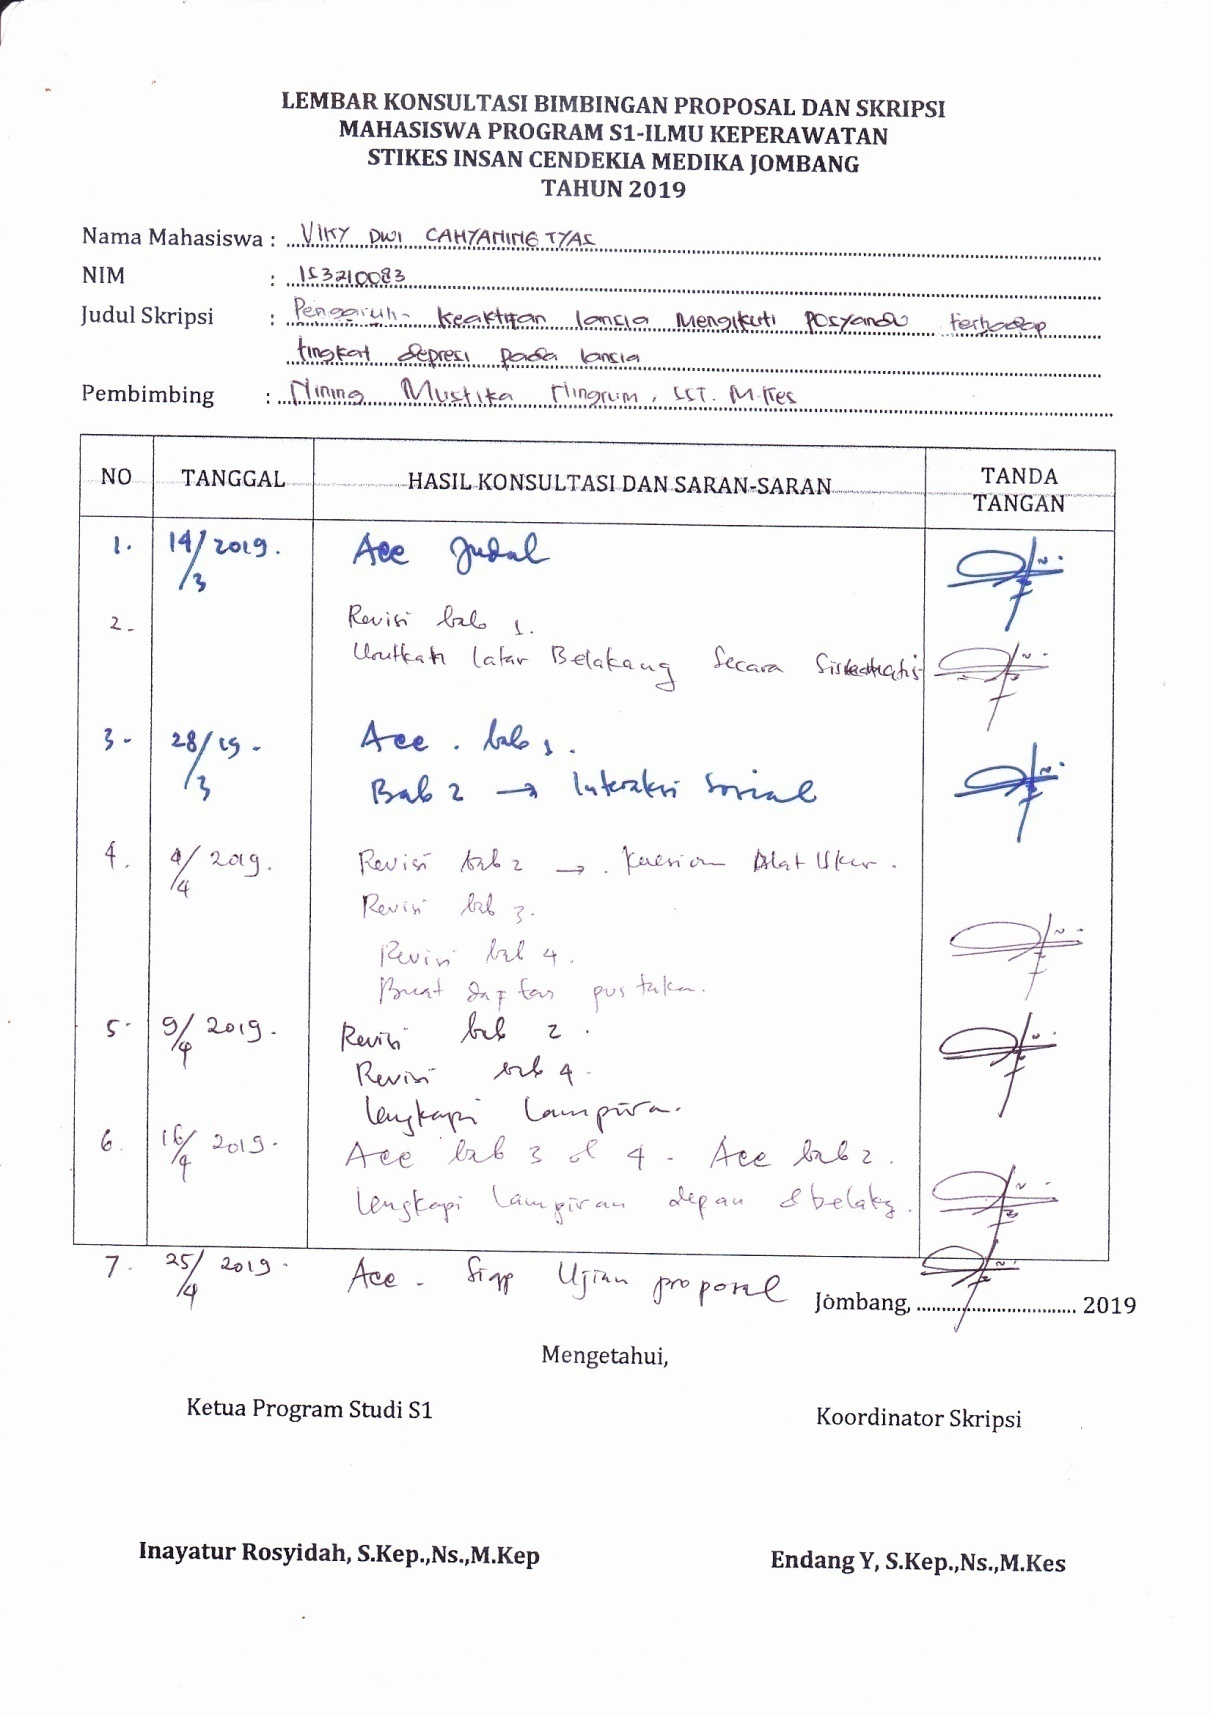 LEMBAR KONSULTASI BIMBINGAN PROPOSAL DAN SKRIPSI
MAHASISWA PROGRAM S1-ILMU KEPERAWATAN
STIKES INSAN CENDEKIA MEDIKA JOMBANG
TAHUN 2019
Nama Mahasiswa : VIKY DWI CAHYANING TYAS
NIM : 153210083
Judul Skripsi : Pengaruh keaktifan lansia Mengikuti Posyandu terhadap
tingkat depresi pada lansia
Pembimbing : Nining Mustika Ningrum, SST. M.Kes
NO TANGGAL HASIL KONSULTASI DAN SARAN-SARAN TANDA TANGAN
1. 14/3 2019. Acc Judul
2. Revisi bab 1.
Urutkan latar Belakang Secara Sistematis
3. 28/3 19. Acc. bab 1.
Bab 2 → Interaksi Sosial
4. 4/4 2019. Revisi bab 2 → Alat Ukur.
Revisi bab 3.
Revisi bab 4.
Buat daftar pustaka.
5. 9/4 2019. Revisi bab 2.
Revisi bab 4.
lengkapi Lampiran.
6. 16/4 2019. Acc bab 3 & 4 - Acc bab 2.
lengkapi lampiran depan & belakg.
7. 25/4 2019. Acc. Siap Ujian proposal
Jombang, .................... 2019
Mengetahui,
Ketua Program Studi S1 Koordinator Skripsi
Inayatur Rosyidah, S.Kep.,Ns.,M.Kep Endang Y, S.Kep.,Ns.,M.Kes